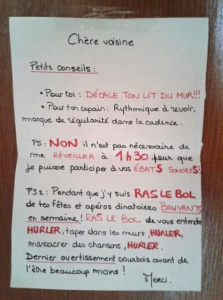 Chère voisine
Petits conseils :
• Pour toi : DÉCALE TON LIT DU MUR!!!
• Pour ton copain : Rythmique à revoir,
manque de régularité dans la cadence.
PS : NON il n'est pas nécessaire de
me RÉVEILLER à 1h30 pour que
je puisse participer à vos ÉBATS SONORES!
PS2 : Pendant que j'y suis RAS LE BOL
de tes fêtes et apéros dinatoires BRUYANTS
en semaine! RAS LE BOL de vous entendre
HURLER, taper dans les murs, HURLER,
massacrer des chansons, HURLER.
Dernier avertissement courtois avant de
l'être beaucoup moins!
Merci.